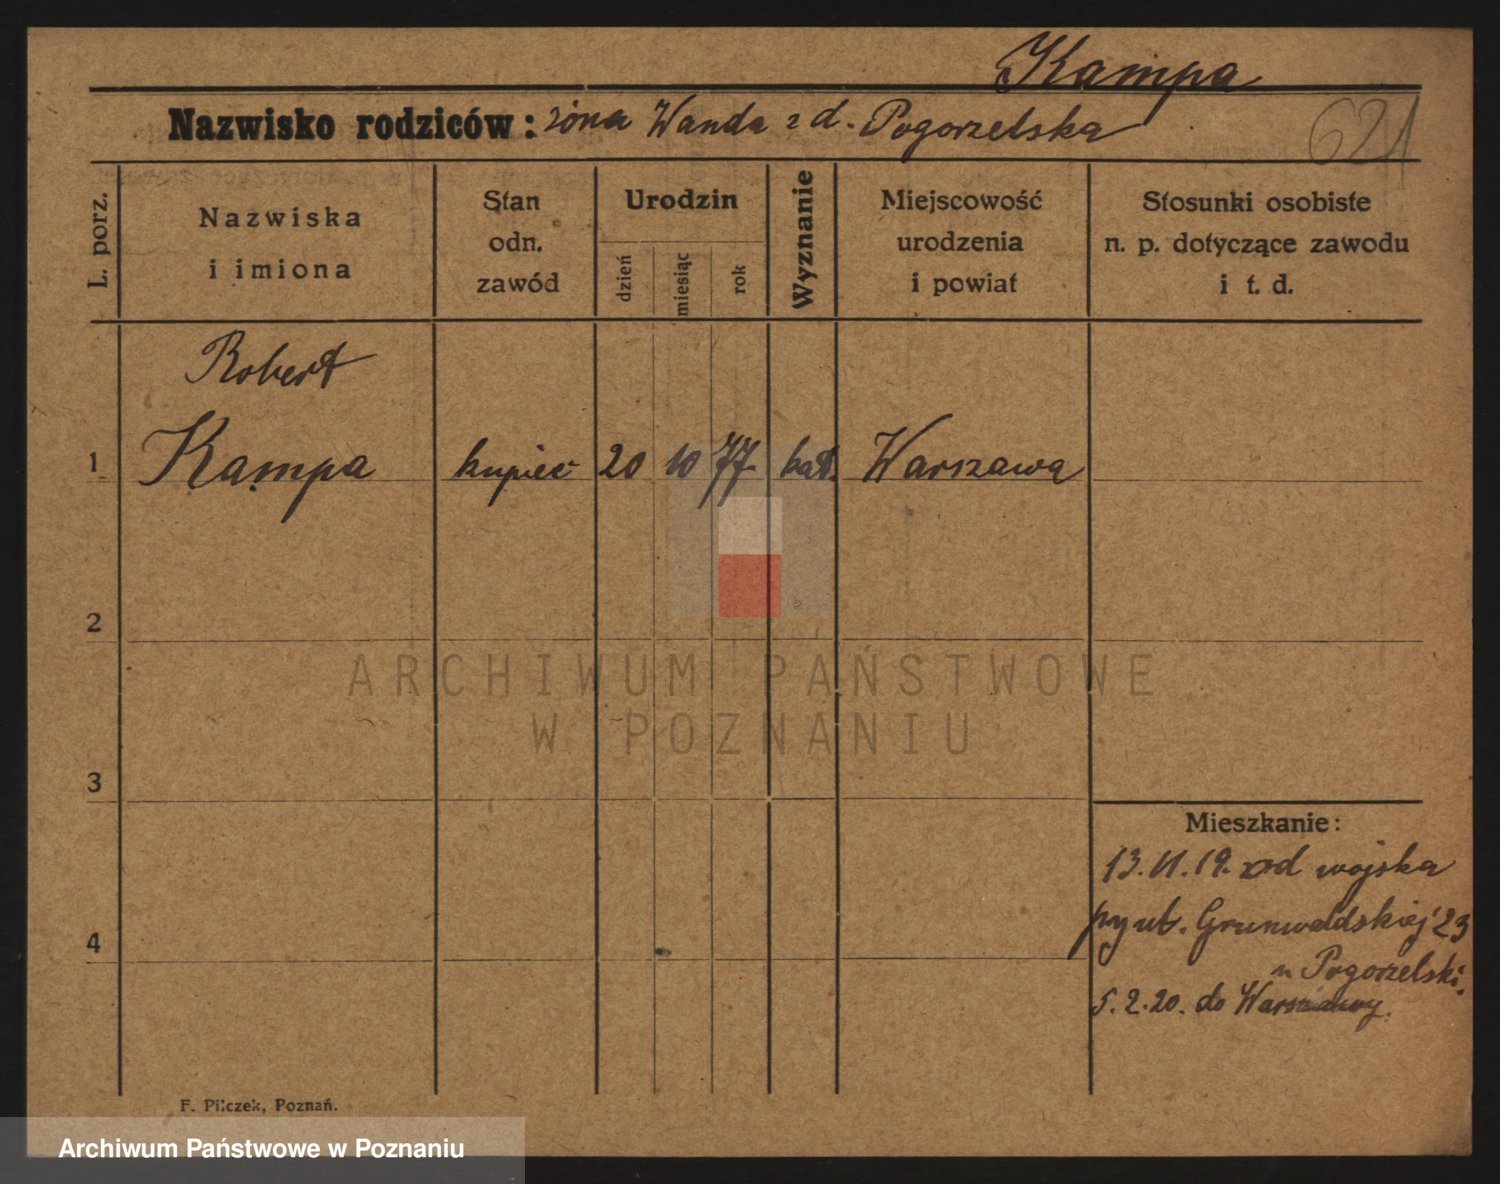 Kampa
Nazwisko rodziców: żona Wanda z d. Pogorzelska
621
L. porz.
Nazwiska
i imiona
Stan
odn.
zawód
Urodzin
dzień
miesiąc
rok
Wyznanie
Miejscowość
urodzenia
i powiat
Stosunki osobiste
n. p. dotyczące zawodu
i t. d.
Robert
1 Kampa kupiec 20 10 77 kat. Warszawa
2
ARCHIWUM PAŃSTWOWE
W POZNANIU
3
Mieszkanie:
13. 11. 19. od wojska
4
ul. Grunwaldskiej 23
u Pogorzelski.
5. 2. 20. do Warszawy.
F. Pilczek, Poznań.
Archiwum Państwowe w Poznaniu